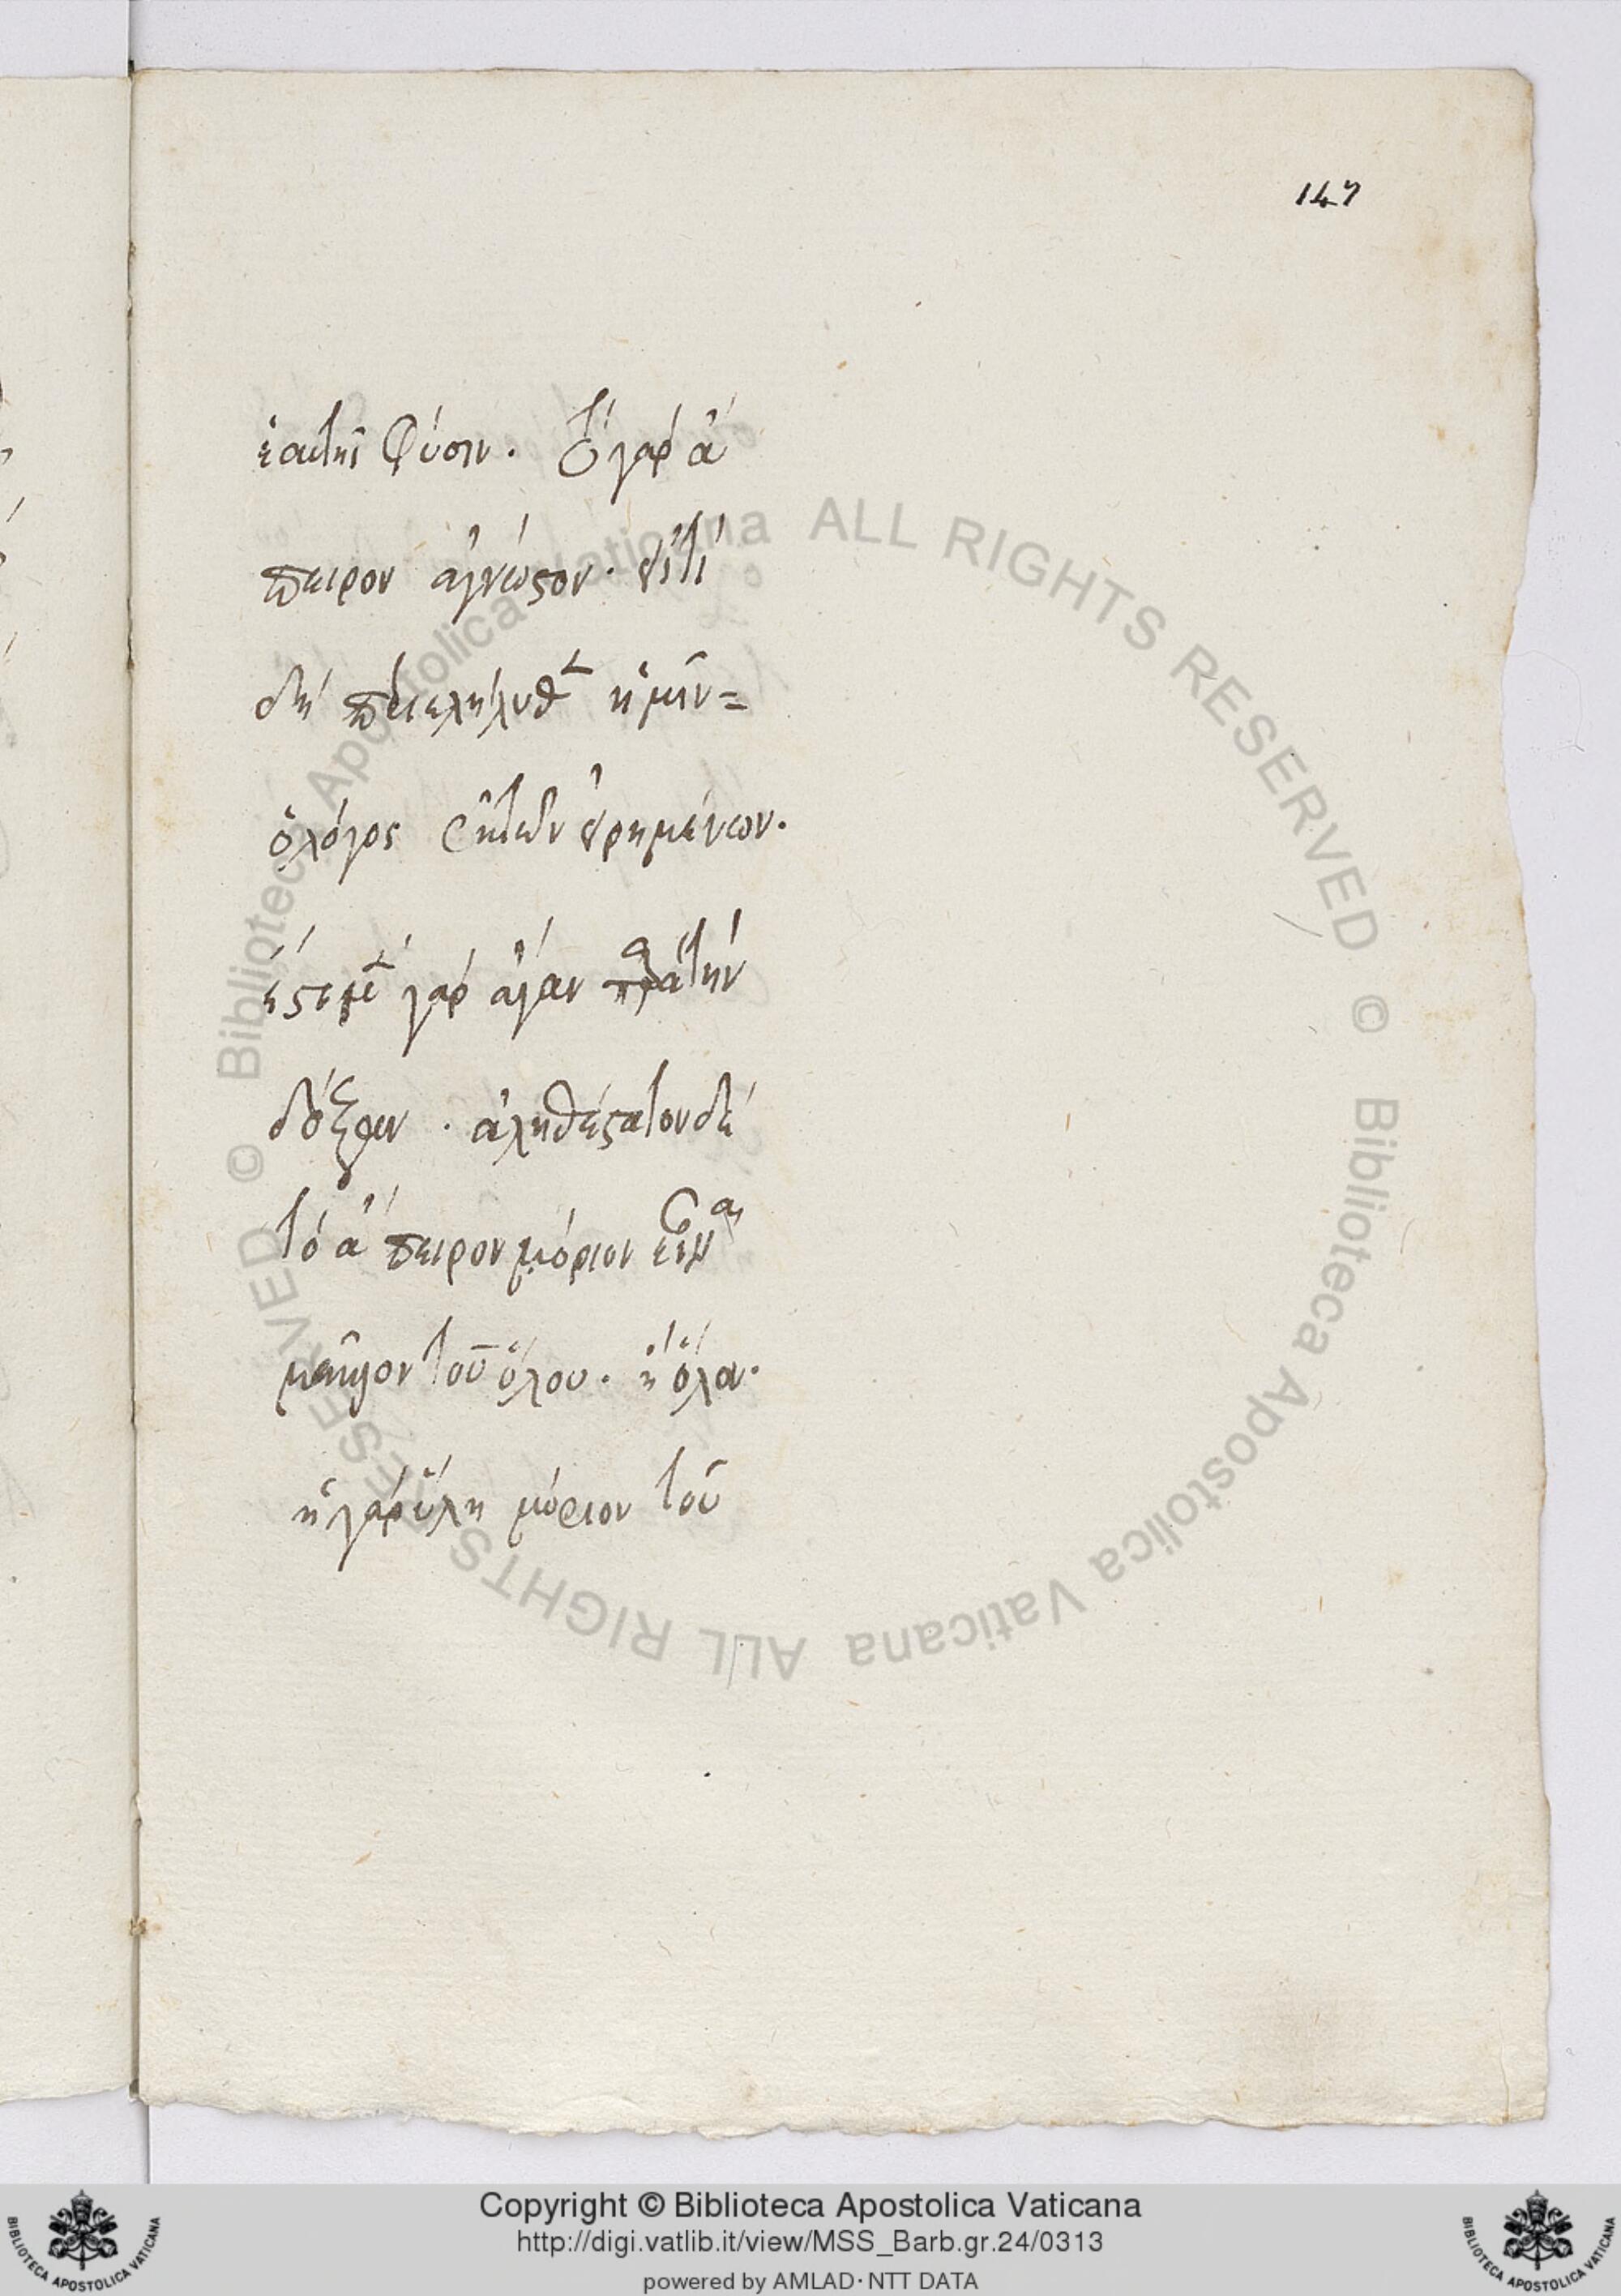 147
ἑαυτῆς φύσιν. τὸ γὰρ ἄ
πειρον ἄγνωστον. εἰ τί
δὴ περιελήλυθεν ἡμῖν =
ὁ λόγος ἐκ τῶν εἰρημένων.
ἔστι μὲν γὰρ ἄγαν παρὰ τὴν
δόξαν. ἀληθέστατον δὲ
τὸ ἄπειρον μόριον εἶναι
μᾶλλον τοῦ ὅλου. ἢ ὅλα.
ἡ γὰρ ὕλη μόριον τοῦ
© Biblioteca Apostolica Vaticana ALL RIGHTS RESERVED © Biblioteca Apostolica Vaticana ALL RIGHTS RESERVED
Copyright © Biblioteca Apostolica Vaticana
http://digi.vatlib.it/view/MSS_Barb.gr.24/0313
powered by AMLAD·NTT DATA
BIBLIOTECA APOSTOLICA VATICANA
BIBLIOTECA APOSTOLICA VATICANA